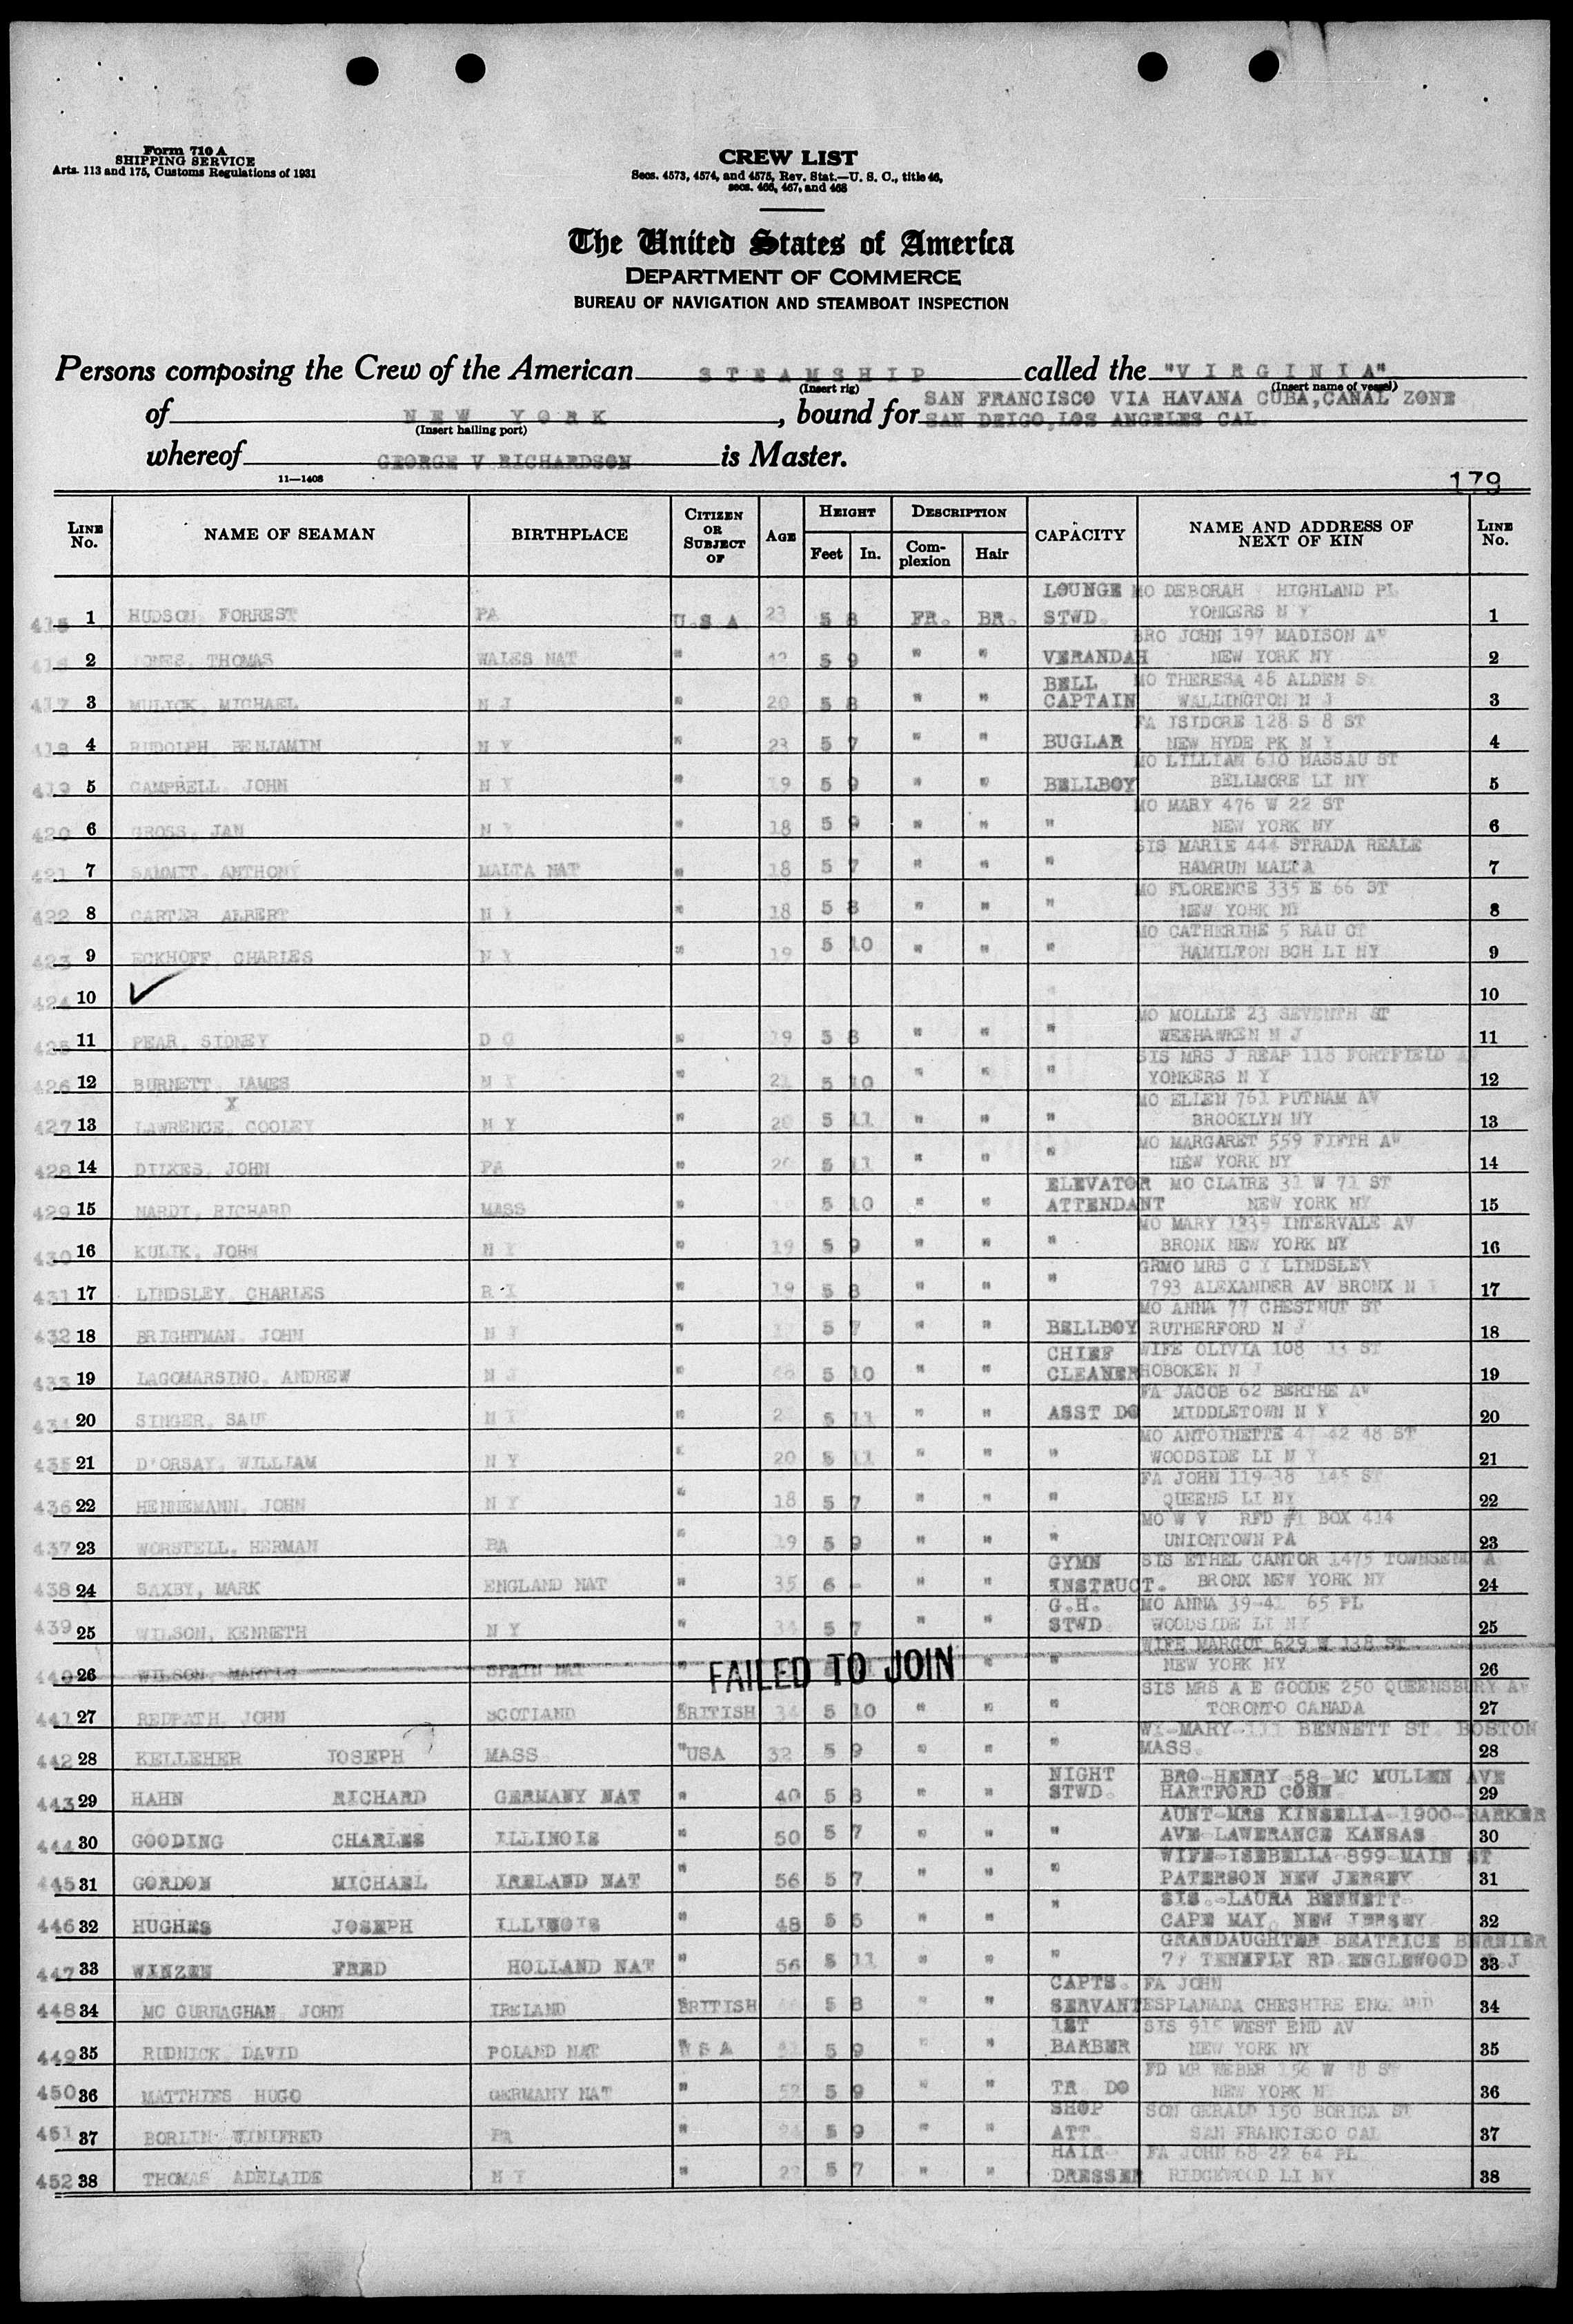 Form 710 A
SHIPPING SERVICE
Arts. 113 and 175, Customs Regulations of 1931
CREW LIST
Secs. 4573, 4574, and 4575, Rev. Stat.—U. S. C., title 46,
secs. 466, 467, and 468
The United States of America
DEPARTMENT OF COMMERCE
BUREAU OF NAVIGATION AND STEAMBOAT INSPECTION
Persons composing the Crew of the American STEAMSHIP called the "VIRGINIA"
(Insert rig) (Insert name of vessel)
of NEW YORK, bound for SAN FRANCISCO VIA HAVANA CUBA, CANAL ZONE
(Insert hailing port) SAN DEIGO, LOS ANGELES CAL.
whereof GEORGE V RICHARDSON is Master.
11—1408
179
LINE No. NAME OF SEAMAN BIRTHPLACE CITIZEN OR SUBJECT OF AGE HEIGHT Feet In. DESCRIPTION Complexion Hair CAPACITY NAME AND ADDRESS OF NEXT OF KIN LINE No.
415 1 HUDSON, FORREST PA U.S A 23 5 8 FR. BR. LOUNGE STWD. MO DEBORAH HIGHLAND PL YONKERS N Y 1
416 2 JONES, THOMAS WALES NAT " 42 5 9 " " VERANDAH BRO JOHN 197 MADISON AV NEW YORK NY 2
417 3 MULICK, MICHAEL N J " 20 5 8 " " BELL CAPTAIN MO THERESA 48 ALDEN ST WALLINGTON N J 3
418 4 RUDOLPH, BENJAMIN N Y " 23 5 7 " " BUGLAR FA ISIDORE 128 S 8 ST NEW HYDE PK N Y 4
419 5 CAMPBELL, JOHN N Y " 19 5 9 " " BELLBOY MO LILLIAN 610 NASSAU ST BELLMORE LI NY 5
420 6 GROSS, JAN N Y " 18 5 9 " " " MO MARY 476 W 22 ST NEW YORK NY 6
421 7 SAMMIT, ANTHONY MALTA NAT " 18 5 7 " " " SIS MARIE 444 STRADA REALE HAMRUN MALTA 7
422 8 CARTER, ALBERT N Y " 18 5 8 " " " MO FLORENCE 335 E 66 ST NEW YORK NY 8
423 9 ECKHOFF, CHARLES N Y " 19 5 10 " " " MO CATHERINE 5 RAU CT HAMILTON BCH LI NY 9
424 10 10
425 11 PEAR, SIDNEY D C " 19 5 8 " " " MO MOLLIE 23 SEVENTH ST WEEHAWKEN N J 11
426 12 BURNETT, JAMES N Y " 21 5 10 " " " SIS MRS J REAP 118 FORTFIELD AV YONKERS N Y 12
427 13 X LAWRENCE, COOLEY N Y " 20 5 11 " " " MO ELLEN 761 PUTNAM AV BROOKLYN NY 13
428 14 DILKES, JOHN PA " 20 5 11 " " " MO MARGARET 559 FIFTH AV NEW YORK NY 14
429 15 NARDI, RICHARD MASS " 5 10 " " ELEVATOR ATTENDANT MO CLAIRE 31 W 71 ST NEW YORK NY 15
430 16 KULIK, JOHN N Y " 19 5 9 " " " MO MARY 1239 INTERVALE AV BRONX NEW YORK NY 16
431 17 LINDSLEY, CHARLES R I " 19 5 8 " " " GRMO MRS C I LINDSLEY 793 ALEXANDER AV BRONX N Y 17
432 18 BRIGHTMAN, JOHN N J " 5 7 " " BELLBOY MO ANNA 77 CHESTNUT ST RUTHERFORD N J 18
433 19 LAGOMARSINO, ANDREW N J " 5 10 " " CHIEF CLEANER WIFE OLIVIA 108 13 ST HOBOKEN N J 19
434 20 SINGER, SAUL N Y " 5 11 " " ASST DO FA JACOB 62 BERTHE AV MIDDLETOWN N Y 20
435 21 D'ORSAY, WILLIAM N Y " 20 5 11 " " " MO ANTOINETTE 42 48 ST WOODSIDE LI N Y 21
436 22 HENNEMANN, JOHN N Y " 18 5 7 " " " FA JOHN 119-38 145 ST QUEENS LI NY 22
437 23 WORSTELL, HERMAN PA " 19 5 9 " " " MO W V RFD #1 BOX 414 UNIONTOWN PA 23
438 24 SAXBY, MARK ENGLAND NAT " 35 6 - " " GYMN INSTRUCT. SIS ETHEL CANTOR 1475 TOWNSEND A BRONX NEW YORK NY 24
439 25 WILSON, KENNETH N Y " 34 5 7 " " G.H. STWD MO ANNA 39-41 65 PL WOODSIDE LI NY 25
440 26 WILSON, MARTIN SPAIN NAT " FAILED TO JOIN " " WIFE MARGOT 629 W 138 ST NEW YORK NY 26
441 27 REDPATH, JOHN SCOTLAND BRITISH 34 5 10 " " " SIS MRS A E GOODE 250 QUEENSBURY AV TORONTO CANADA 27
442 28 KELLEHER JOSEPH MASS "USA 32 5 9 " " " WI-MARY-111 BENNETT ST. BOSTON MASS. 28
443 29 HAHN RICHARD GERMANY NAT " 40 5 8 " " NIGHT STWD. BRO-HENRY-58-MC MULLEN AVE HARTFORD CONN 29
444 30 GOODING CHARLES ILLINOIS " 50 5 7 " " " AUNT-MRS KINSELLA-1900-BARKER AVE-LAWERANCE KANSAS 30
445 31 GORDON MICHAEL IRELAND NAT " 56 5 7 " " " WIFE-ISEBELLA-899-MAIN ST PATERSON NEW JERSEY 31
446 32 HUGHES JOSEPH ILLINOIS " 48 5 5 " " " SIS.-LAURA BENNETT- CAPE MAY, NEW JERSEY 32
447 33 WINZEN FRED HOLLAND NAT " 56 5 11 " " " GRANDAUGHTER BEATRICE BERNIER 77 TENEFLY RD ENGLEWOOD N.J 33
448 34 MC GURNAGHAN JOHN IRELAND BRITISH 5 8 " " CAPTS. SERVANT FA JOHN ESPLANADA CHESHIRE ENGLAND 34
449 35 RUDNICK DAVID POLAND NAT U S A 5 9 " " 1ST BARBER SIS 915 WEST END AV NEW YORK NY 35
450 36 MATTHIES HUGO GERMANY NAT " 52 5 9 " " TR DO FD MR WEBER 156 W 78 ST NEW YORK N 36
451 37 BORLIN WINIFRED PA " 5 9 " " SHOP ATT. SON GERALD 150 BORICA ST SAN FRANCISCO CAL 37
452 38 THOMAS ADELAIDE N Y " 22 5 7 " " HAIR- DRESSER FA JOHN 68-22 64 PL RIDGEWOOD LI NY 38